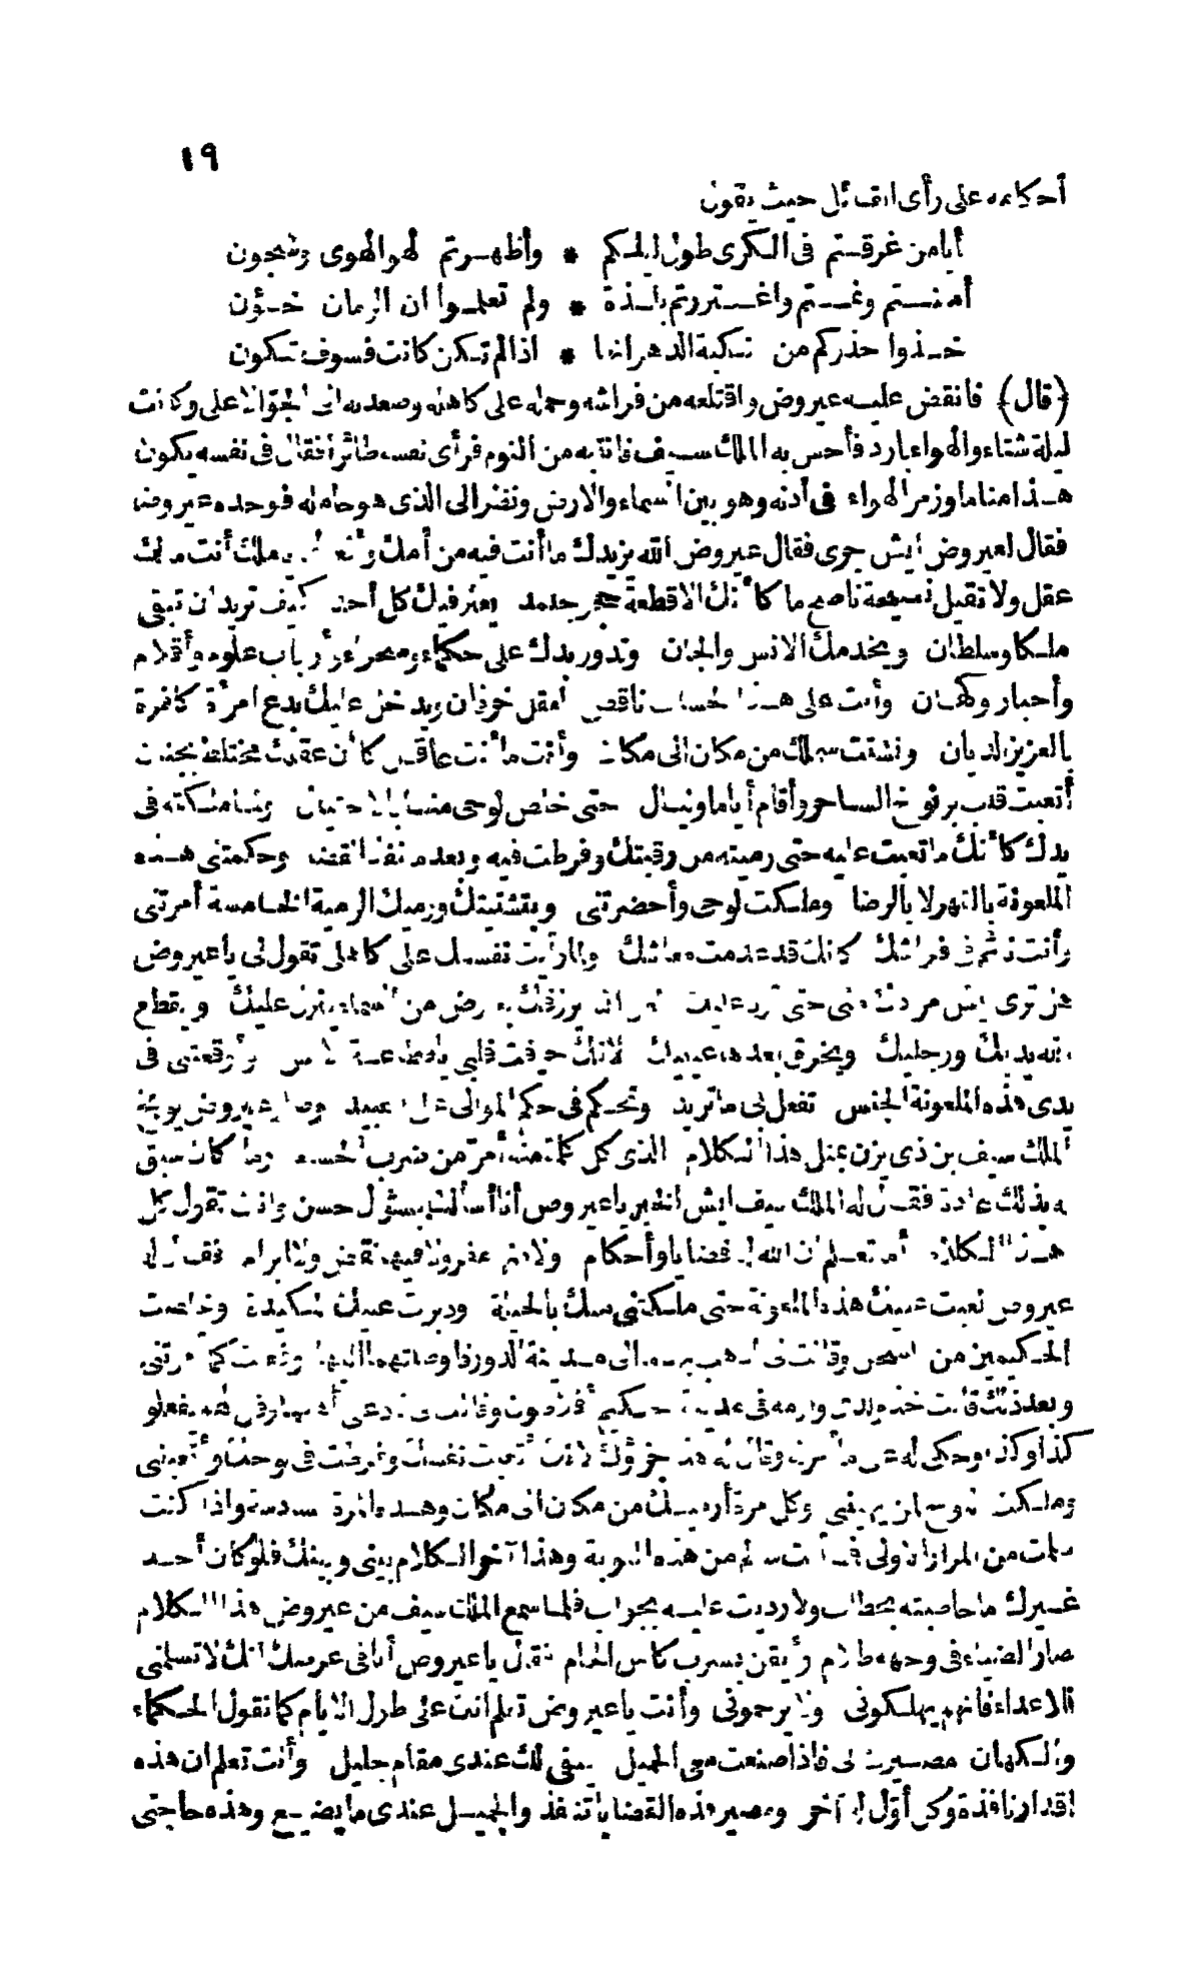 ١٩
أحكامه على رأى القائل حيث يقول
أيا من غرقتم فى الكرى طول ليلكم * وأظهرتم لهو الهوى وشجون
أمنتم ونمتم واغتررتم بلذة * ولم تعلموا ان الزمان خؤن
خذوا حذركم من نكبة الدهر انها * اذا لم تكن كانت فسوف تكون
(قال) فانقض عليه عيروض واقتلعه من فراشه وحمله على كاهله وصعد به الى الجو الاعلى وكانت
ليلة شتاء والهواء بارد فأحس به الملك سيف فانتبه من النوم فرأى نفسه طائرا فقال فى نفسه يكون
هذا مناما وزمر الهواء فى أذنه وهو بين السماء والارض ونظر الى الذى هو حامله فوجده عيروض
فقال لعيروض ايش جرى فقال عيروض الله يزيدك ما أنت فيه من أملك ملك أنت مالك
عقل ولا تقبل نصيحة ناصح ما كأنك الا قطعة حجر جلمد يعثر فيك كل أحد كيف تريد ان تبقى
ملكا وسلطان ويخدمك الانس والجان وتدور يدك على حكماء وسحرة وأرباب علوم وأقلام
وأحبار وكهان وأنت على هذا الحساب ناقص العقل خوفان يدخل عليك بدع امرأة كافرة
بالعزيز الديان وتشتت سملك من مكان الى مكان وأنت ما أنت عاقل كأن عقلك مختلط بجنان
أتعبت قلب برنوخ الساحر وأقام أياما وليال حتى خلص لوحى منها بالاحتيال ولما ملكته فى
يدك كأنك ما تعبت عليه حتى رميته من رقبتك وفرطت فيه وبعد ما نفذ القضا وحكمتنى هذه
الملعونة بالقهر لا بالرضا وملكت لوحى وأحضرتنى وبتشتيتك ورميك الرمية الخامسة أمرتنى
وأنت نائم فى فراشك كأنك قد عدمت معاشك ولما رأيت نفسك على كاهلى تقول لى يا عيروض
هل ترى ايش مردك منى حتى ترد عليك الله يرزقك بمرض من السماء ينزل عليك ويقطع
الله يديك ورجليك ويخرق بعدها عينيك لانك حرقت قلبى وأوقعتنى فى
يدى هذه الملعونة الجنس تفعل بى ما تريد وتحكم فى حكم الموالى على العبيد وصار عيروض يوبخ
الملك سيف بن ذى يزن بمثل هذا الكلام الذى كل كلمة منه أمر من ضرب الحسام وما كان سبق
له بذلك عادة فقال له الملك سيف ايش الخبر يا عيروض أنا أسألك بسؤال حسن وانت تقول كل
هذا الكلام أما تعلم ان الله له قضايا وأحكام ولا يتم عقرولا فيها نقض ولا ابرام فقال له
عيروض تعبت عينك هذه الملعونة حتى ملكتنى منك بالحيلة ودبرت عليك مكيدة وخلصت
الحكيمين من السجن وقالت لى اذهب بهما الى مدينة الدور فأوصلتهما اليها وفعلت كما أمرتنى
وبعد ذلك قالت خذ وارمه فى مدينة حكيم
كذا وكذا وحكى له على ما
وملكت لوحى وكل مرة أرميك من مكان الى مكان وهذه المرة سادسة واذا كنت
سلمت من المرار الاولى فما أنت سالم من هذه النوبة وهذا آخر الكلام بينى وبينك فلو كان أحد
غيرك ما خاطبته بخطاب ولا رديت عليه بجواب فلما سمع الملك سيف من عيروض هذا الكلام
صار الضياء فى وجهه ظلام وأيقن بشرب كاس الحمام فقال يا عيروض أنا فى عرضك انك لا تسلمنى
للاعداء فانهم يهلكونى ولا يرحمونى وأنت يا عيروض تعلم اننى على طول الايام كما تقول الحكماء
والكهان مصيرك لى فاذا صنعت معى الجميل يبقى لك عندى مقام جليل وأنت تعلم ان هذه
اقدار نافذة وكل أول له آخر ومصير هذه القضايا تنفذ والجميل عندى ما يضيع وهذه حاجتى